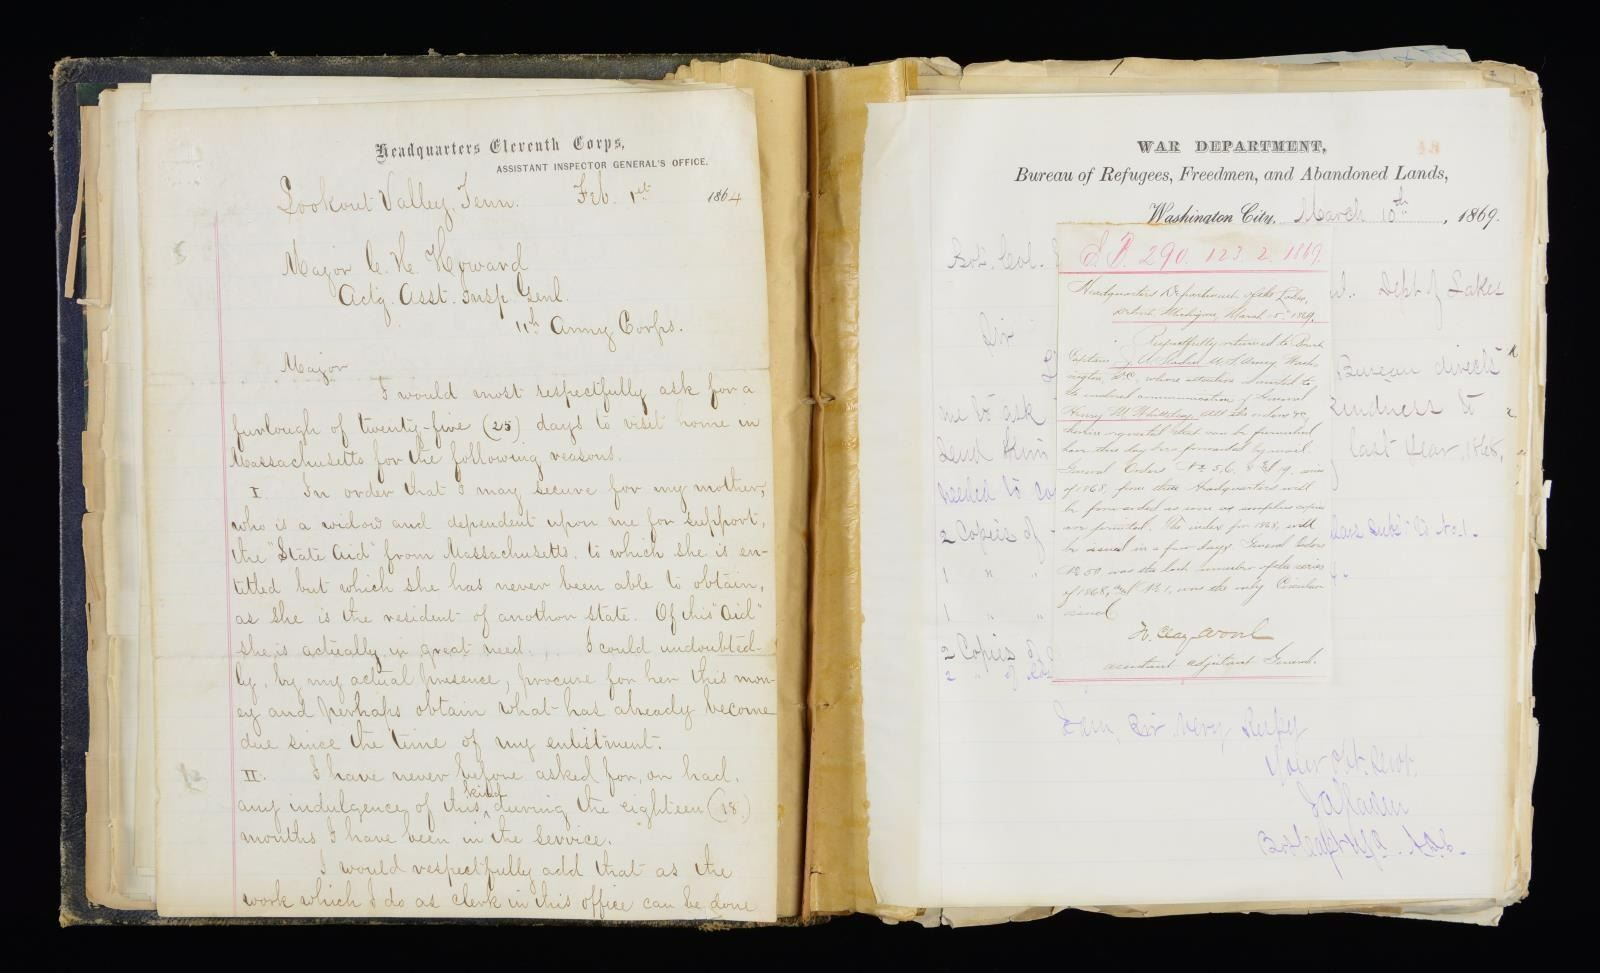 Headquarters Eleventh Corps,
ASSISTANT INSPECTOR GENERAL'S OFFICE.
Lookout Valley, Tenn. Feb. 1st 1864
Major C. H. Howard
Actg. Asst. Insp. Genl.
11th Army Corps.
Major
I would most respectfully ask for a
furlough of twenty-five (25) days to visit home in
Massachusetts for the following reasons.
I. In order that I may secure for my mother,
who is a widow and dependent upon me for support,
the "State Aid" from Massachusetts, to which she is en-
titled but which she has never been able to obtain,
as she is the resident of another state. Of this "Aid"
she is actually in great need. I could undoubted-
ly, by my actual presence, procure for her this mon-
ey and perhaps obtain what has already become
due since the time of my enlistment.
II. I have never before asked for, or had,
any indulgence of this kind during the eighteen (18)
months I have been in the service.
I would respectfully add that as the
work which I do as clerk in this office can be done
WAR DEPARTMENT,
Bureau of Refugees, Freedmen, and Abandoned Lands,
Washington City, March 10th, 1869.
Bvt. Col.
Dept of Lakes
Sir
Bureau directs
me to ask
kindness to
send him
last Year, 1868,
needed to
2 Copies of
1 " "
1 " "
2 Copies
2 " of
290. 123. 2. 1869.
Headquarters Department of the Lakes,
Detroit Michigan, March 15th 1869.
Respectfully returned to Brevet
Captain U. S. Army, Wash-
ington, D.C., whose attention is invited to
the endorsed communication of General
Henry M. Whittlesey. All the orders &c
herein requested that can be furnished
have this day been forwarded by mail.
General Orders No. 5, 6, 19, series
of 1868, from these Headquarters will
be forwarded as soon as surplus copies
are printed. The index for 1868, will
be issued in a few days. General Orders
No. 50, was the last number of the series
of 1868, and No. 1, was the only Circular
issued.
H. Clay Wood
Assistant Adjutant General.
I am, Sir Very Respy
Your Obt. Servt.